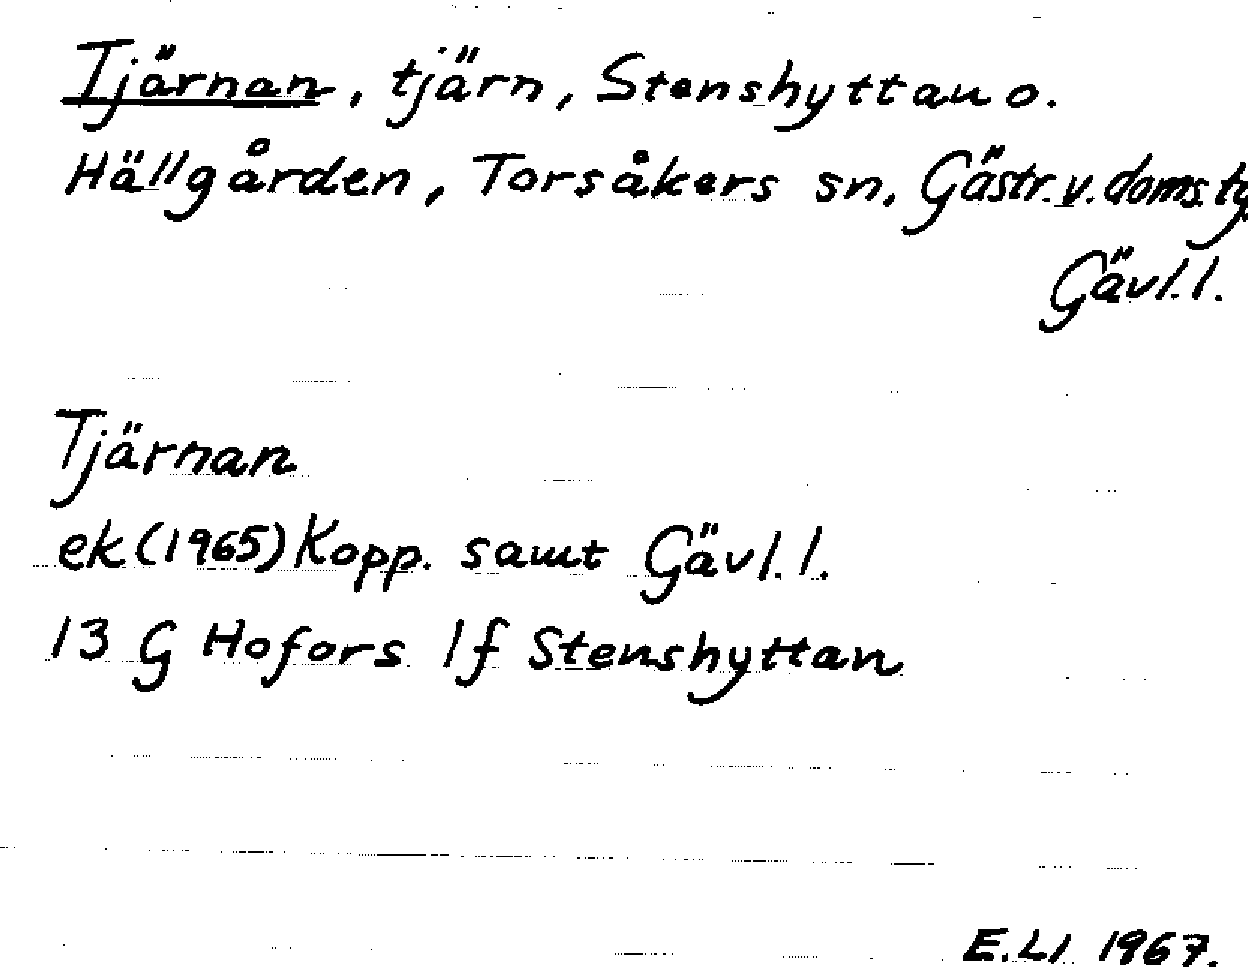 Tjärnan, tjärn, Stenshyttan o.
Hällgården, Torsåkers sn. Gästr. v. doms. tg
Gävl. l.
Tjärnan
ek (1965) Kopp. samt Gävl. l.
13 G Hofors 1 f Stenshyttan
E. Ll 1967.